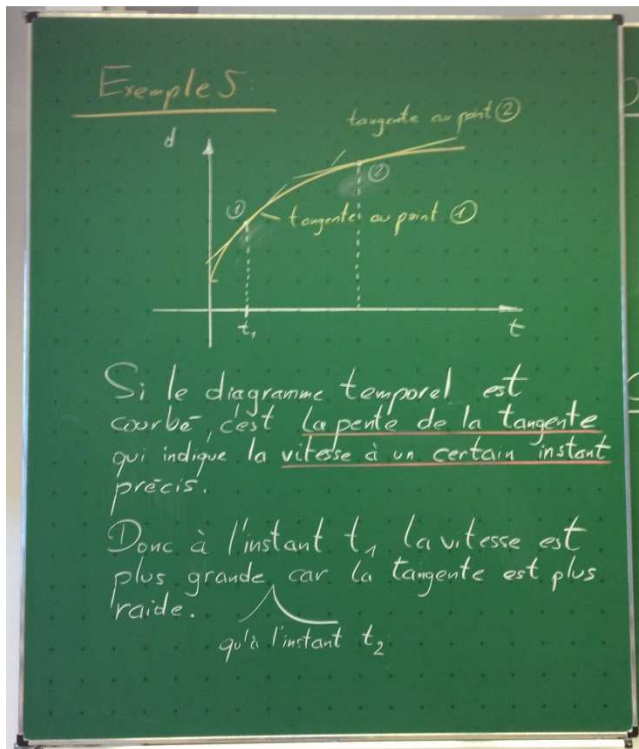 Exemple 5:
d
tangente au point ②
②
①
tangente au point ①
t₁
t
Si le diagramme temporel est
courbé, c'est la pente de la tangente
qui indique la vitesse à un certain instant
précis.
Donc à l'instant t₁ la vitesse est
plus grande car la tangente est plus
raide.
qu'à l'instant t₂